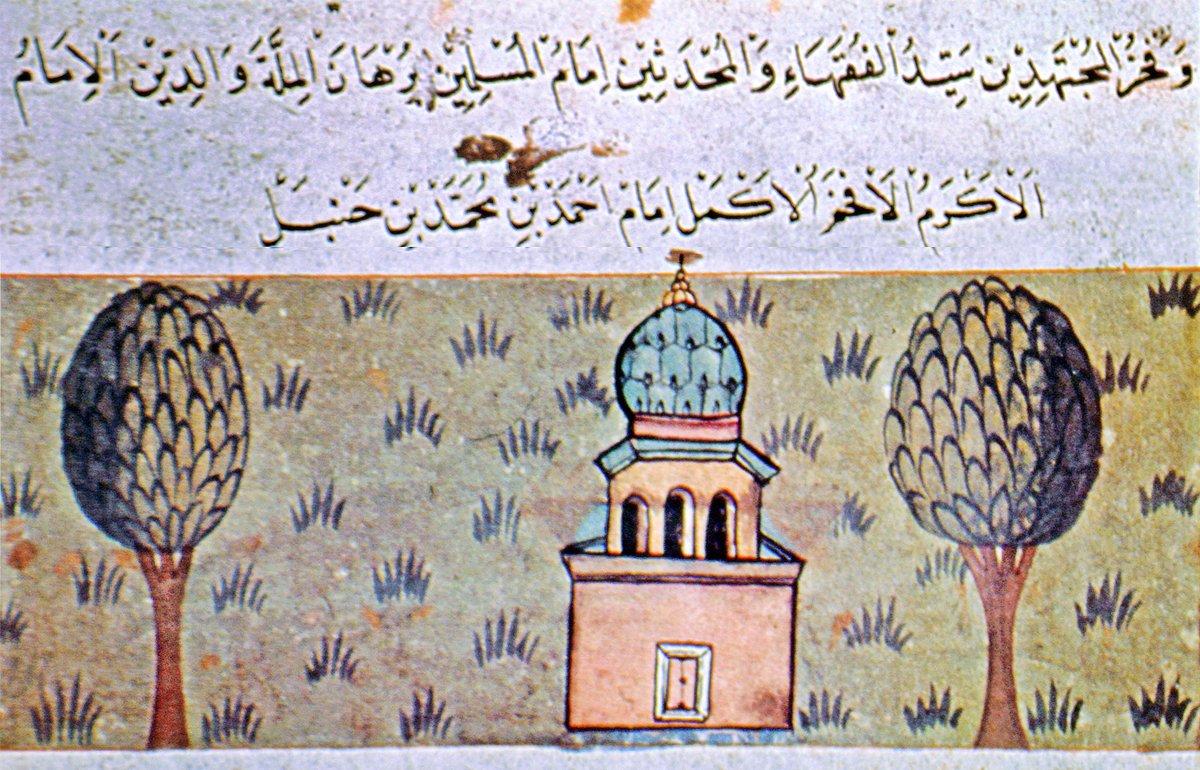 وَفَخْرُ الْمُجْتَهِدِيْنِ سَيِّدُ الْفُقَهَاءِ وَالْمُحْدَثِيْنِ اِمَامُ الْمُسْلِمِيْنِ بُرْهَانَ الْمِلَّةَ وَالدِيْنِ اَلْاِمَامُ
اَلْاَكْرَمُ الْاَفْخَرُ اَلْاَكْمَلْ اِمَامْ اَحْمَدْ بِنِ مُحَمَّدْ بِنِ حَنْبَلْ